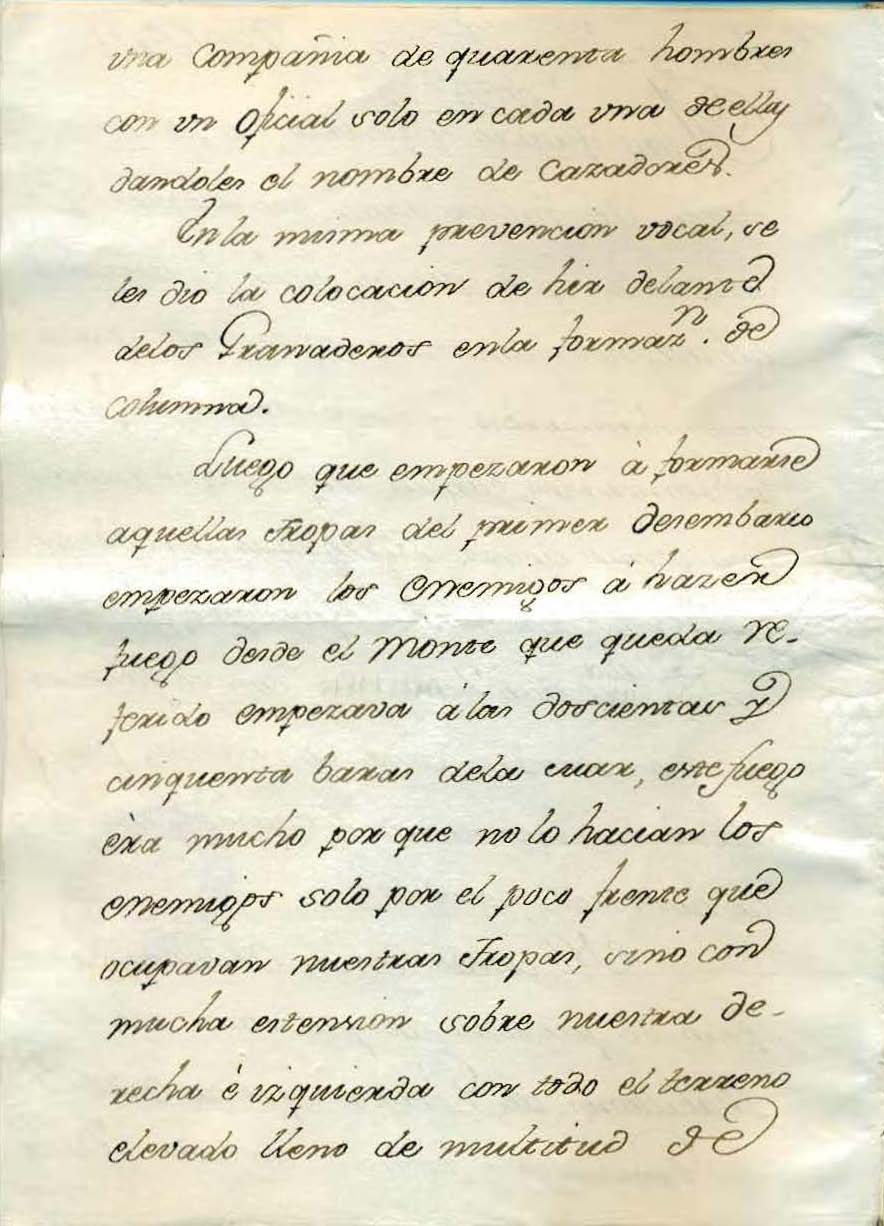 una Compañia de quarenta hombres
con un Oficial solo en cada una de ellas
dandoles el nombre de Cazadores.
En la misma prevencion vocal, se
les dio la colocacion de hir delante
delos Granaderos enla formazn. de
columna.
Luego que empezaron à formarse
aquellas Tropas del primer desembarco
empezaron los Enemigos á hazer
fuego desde el Monte que queda re-
ferido empezava á las doscientas y
cinquenta baras dela mar, este fuego
èra mucho por que no lo hacian los
enemigos solo por el poco frente que
ocupavan nuestras Tropas, sino con
mucha estension sobre nuestra de-
recha è izquierda con todo el terreno
elevado lleno de multitud de